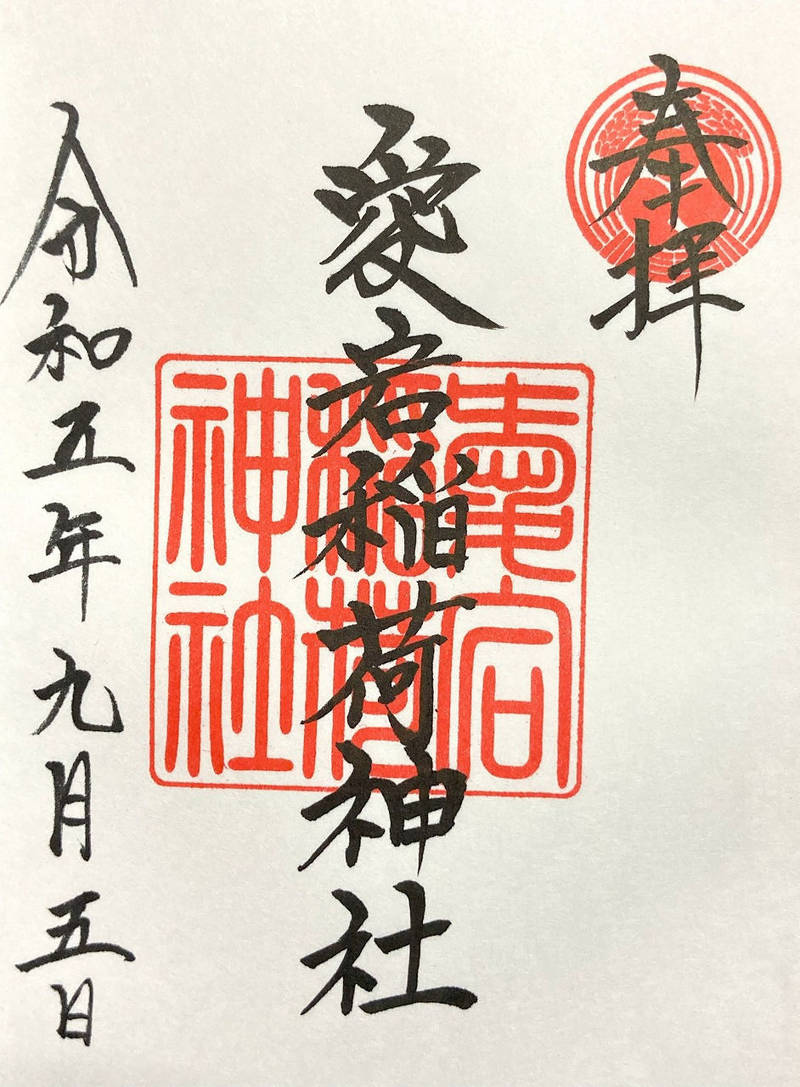 奉拝
愛宕稲荷神社
愛宕
稲荷
神社
令和五年九月五日